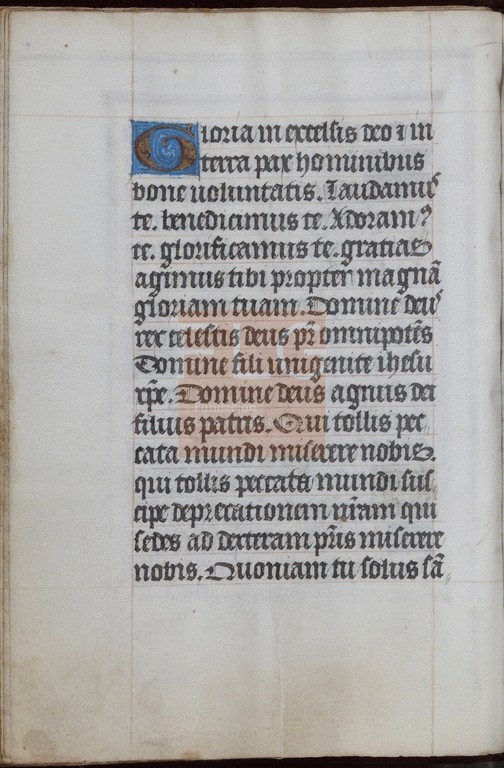 Gloria in excelsis deo ⁊ in
terra pax hominibus
bone uoluntatis. Laudamuꝰ
te. benedicimus te. Adoramꝰ
te. glorificamus te. gratias
agimus tibi propter magnã
gloriam tuam. Domine deuꝰ
rex celestis deus pr̃ omnipotẽs
Domine fili unigenite ihesu
xp̃e. Domine deus agnus dei
filius patris. Qui tollis pec
cata mundi miserere nobis.
qui tollis peccata mundi sus
cipe deprecationem nr̃am qui
sedes ad dexteram pr̃is miserere
nobis. Quoniam tu solus sã